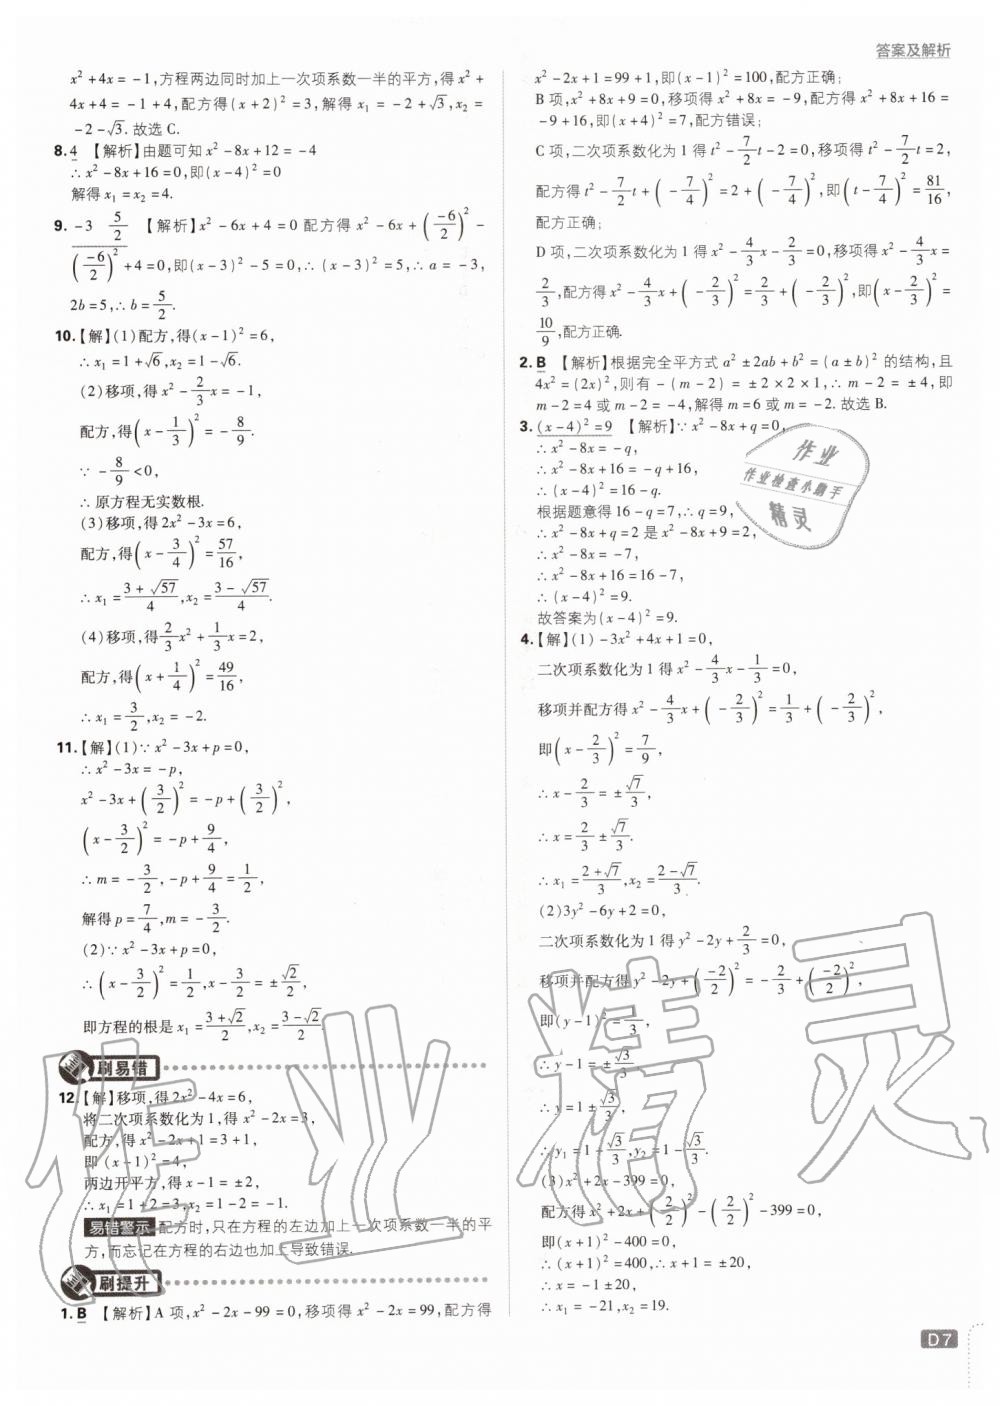 答案及解析
x²+4x=-1,方程两边同时加上一次项系数一半的平方,得x²+
4x+4=-1+4,配方得(x+2)²=3,解得x₁=-2+√3,x₂=
-2-√3.故选C.
8. 4 【解析】由题可知x²-8x+12=-4
∴x²-8x+16=0,即(x-4)²=0
解得x₁=x₂=4.
9. -3 5/2 【解析】x²-6x+4=0配方得x²-6x+(-6/2)²-
(-6/2)²+4=0,即(x-3)²-5=0,∴(x-3)²=5,∴a=-3,
2b=5,∴b=5/2.
10.【解】(1)配方,得(x-1)²=6,
∴x₁=1+√6,x₂=1-√6.
(2)移项,得x²-2/3x=-1,
配方,得(x-1/3)²=-8/9.
∵-8/9<0,
∴原方程无实数根.
(3)移项,得2x²-3x=6,
配方,得(x-3/4)²=57/16,
∴x₁=(3+√57)/4,x₂=(3-√57)/4.
(4)移项,得2/3x²+1/3x=2,
配方,得(x+1/4)²=49/16,
∴x₁=3/2,x₂=-2.
11.【解】(1)∵x²-3x+p=0,
∴x²-3x=-p,
x²-3x+(3/2)²=-p+(3/2)²,
(x-3/2)²=-p+9/4,
∴m=-3/2,-p+9/4=1/2,
解得p=7/4,m=-3/2.
(2)∵x²-3x+p=0,
∴(x-3/2)²=1/2,x-3/2=±√2/2,
即方程的根是x₁=(3+√2)/2,x₂=(3-√2)/2.
刷易错
12.【解】移项,得2x²-4x=6,
将二次项系数化为1,得x²-2x=3,
配方,得x²-2x+1=3+1,
即(x-1)²=4,
两边开平方,得x-1=±2,
∴x₁=1+2=3,x₂=1-2=-1.
易错警示 配方时,只在方程的左边加上一次项系数一半的平
方,而忘记在方程的右边也加上导致错误.
刷提升
1. B 【解析】A项,x²-2x-99=0,移项得x²-2x=99,配方得
x²-2x+1=99+1,即(x-1)²=100,配方正确;
B项,x²+8x+9=0,移项得x²+8x=-9,配方得x²+8x+16=
-9+16,即(x+4)²=7,配方错误;
C项,二次项系数化为1得t²-7/2t-2=0,移项得t²-7/2t=2,
配方得t²-7/2t+(-7/4)²=2+(-7/4)²,即(t-7/4)²=81/16,
配方正确;
D项,二次项系数化为1得x²-4/3x-2/3=0,移项得x²-4/3x=
2/3,配方得x²-4/3x+(-2/3)²=2/3+(-2/3)²,即(x-2/3)²=
10/9,配方正确.
2. B 【解析】根据完全平方式a²±2ab+b²=(a±b)²的结构,且
4x²=(2x)²,则有-(m-2)=±2×2×1,∴m-2=±4,即
m-2=4或m-2=-4,解得m=6或m=-2.故选B.
3. (x-4)²=9 【解析】∵x²-8x+q=0,
∴x²-8x=-q,
∴x²-8x+16=-q+16,
∴(x-4)²=16-q.
根据题意得16-q=7,∴q=9,
∴x²-8x+q=2是x²-8x+9=2,
∴x²-8x=-7,
∴x²-8x+16=16-7,
∴(x-4)²=9.
故答案为(x-4)²=9.
4.【解】(1)-3x²+4x+1=0,
二次项系数化为1得x²-4/3x-1/3=0,
移项并配方得x²-4/3x+(-2/3)²=1/3+(-2/3)²,
即(x-2/3)²=7/9,
∴x-2/3=±√7/3,
∴x=2/3±√7/3.
∴x₁=(2+√7)/3,x₂=(2-√7)/3.
(2)3y²-6y+2=0,
二次项系数化为1得y²-2y+2/3=0,
移项并配方得y²-2y+(-2/2)²=-2/3+(-2/2)²,
即(y-1)²=1/3,
∴y-1=±√3/3
∴y=1±√3/3,
∴y₁=1+√3/3,y₂=1-√3/3.
(3)x²+2x-399=0,
配方得x²+2x+(2/2)²-(2/2)²-399=0,
即(x+1)²-400=0,
∴(x+1)²=400,∴x+1=±20,
∴x=-1±20,
∴x₁=-21,x₂=19.
作业
作业检查小助手
精灵
作业精灵
D7